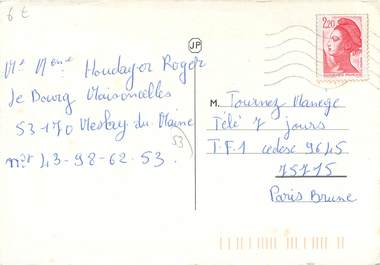 6 €
JP
2,20
Mr Mme Houdayer Roger
le Bourg Maisoncelles
53-170 Meslay-du-Maine
n°t 43-98-62-53.
53
M. Tournez Manège
Télé 7 jours
T.F.1 cedese 9645
75715
Paris Brune